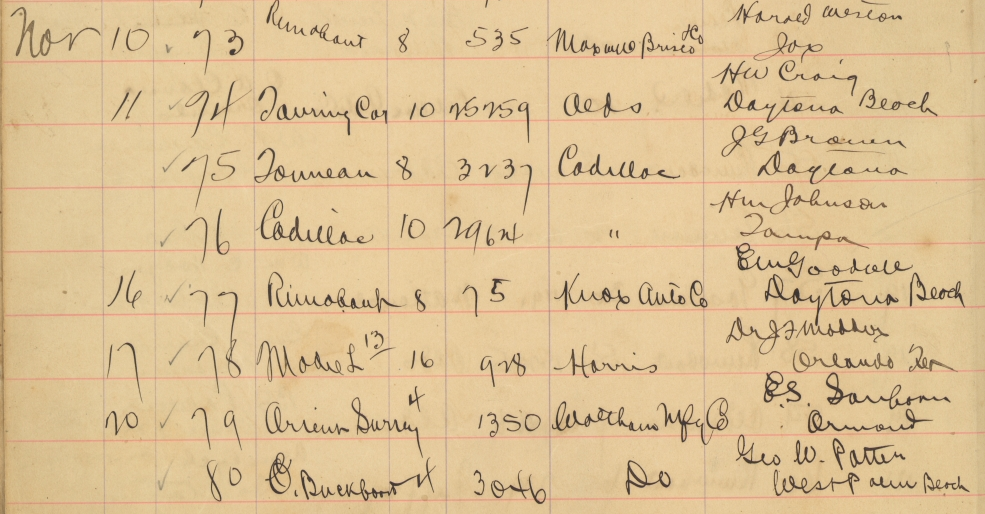 Harold Weston
Nov 10 73 Runabout 8 535 Maxwell Brisco Co Jax
HW Craig
11 74 Touring Car 10 25259 Olds Daytona Beach
J G Brown
75 Tonneau 8 3237 Cadillac Daytona
HM Johnson
76 Cadillac 10 2964 " Tampa
EM Goodall
16 77 Runabout 8 75 Knox Auto Co Daytona Beach
Dr J F
17 78 Model L 13 16 928 Harris Orlando
E.S. Sanborn
20 79 Orient Surrey 4 1350 Waltham Mfg Co Ormond
Geo W. Potter
80 O. Buckboard 4 3046 Do West Palm Beach